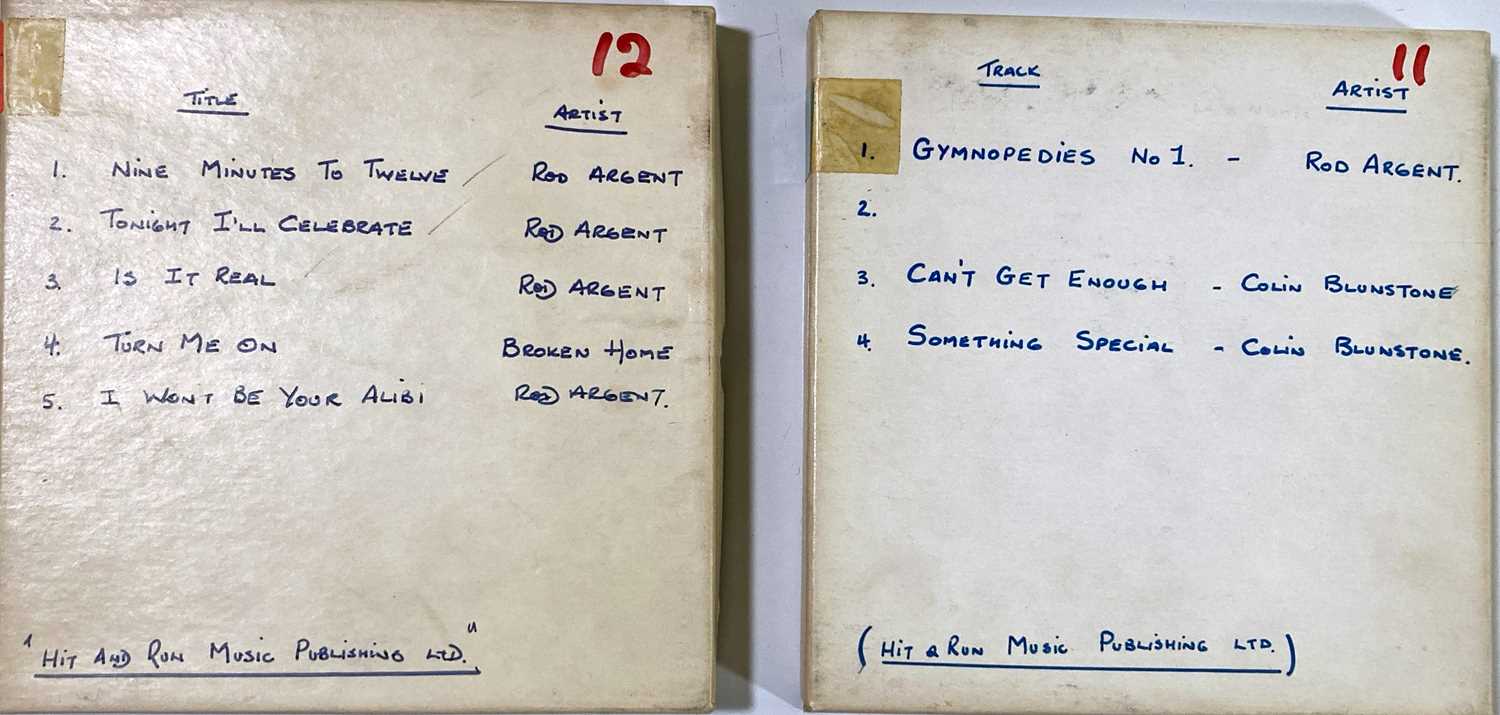 12
TITLE ARTIST
1. NINE MINUTES TO TWELVE ROD ARGENT
2. TONIGHT I'LL CELEBRATE ROD ARGENT
3. IS IT REAL ROD ARGENT
4. TURN ME ON BROKEN HOME
5. I WON'T BE YOUR ALIBI ROD ARGENT.
"HIT AND RUN MUSIC PUBLISHING LTD."
11
TRACK ARTIST
1. GYMNOPEDIES No 1. - ROD ARGENT.
2.
3. CAN'T GET ENOUGH - COLIN BLUNSTONE
4. SOMETHING SPECIAL - COLIN BLUNSTONE.
(HIT & RUN MUSIC PUBLISHING LTD.)